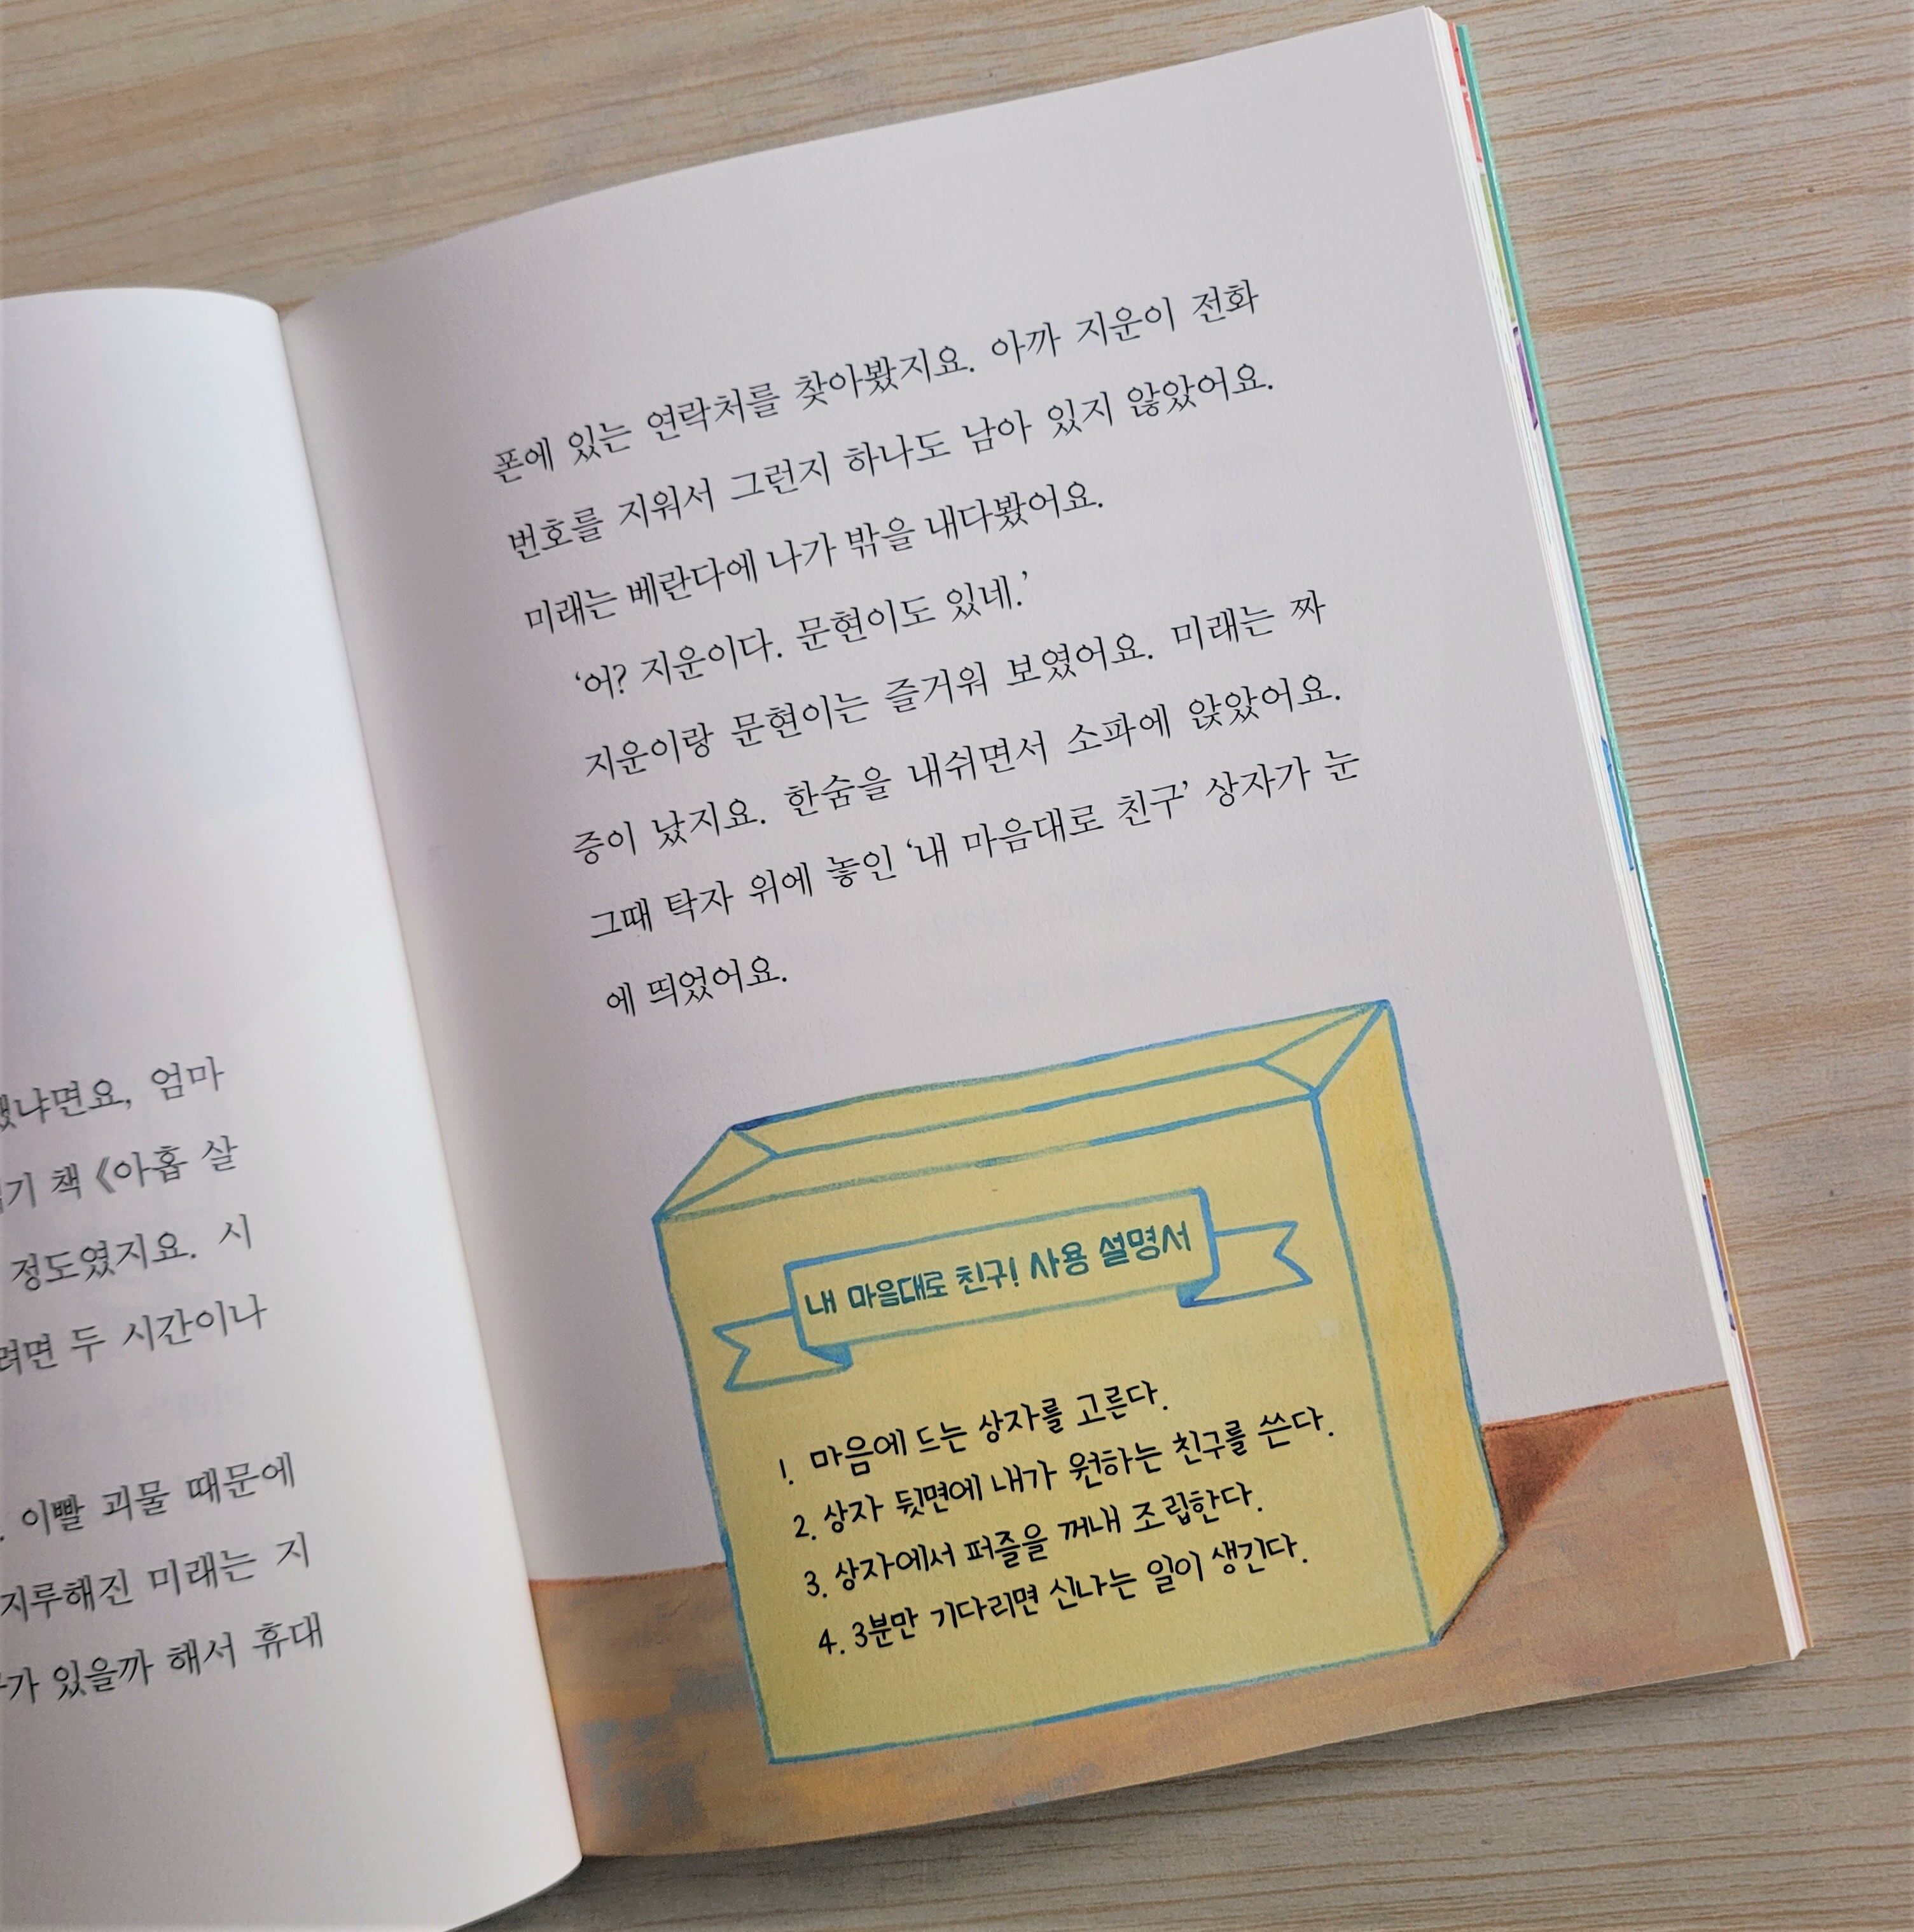 냐면요, 엄마
기 책 《아홉 살
정도였지요. 시
려면 두 시간이나
이빨 괴물 때문에
지루해진 미래는 지
가 있을까 해서 휴대
폰에 있는 연락처를 찾아봤지요. 아까 지운이 전화
번호를 지워서 그런지 하나도 남아 있지 않았어요.
미래는 베란다에 나가 밖을 내다봤어요.
‘어? 지운이다. 문현이도 있네.’
지운이랑 문현이는 즐거워 보였어요. 미래는 짜
증이 났지요. 한숨을 내쉬면서 소파에 앉았어요.
그때 탁자 위에 놓인 ‘내 마음대로 친구’ 상자가 눈
에 띄었어요.
내 마음대로 친구! 사용 설명서
1. 마음에 드는 상자를 고른다.
2. 상자 뒷면에 내가 원하는 친구를 쓴다.
3. 상자에서 퍼즐을 꺼내 조립한다.
4. 3분만 기다리면 신나는 일이 생긴다.